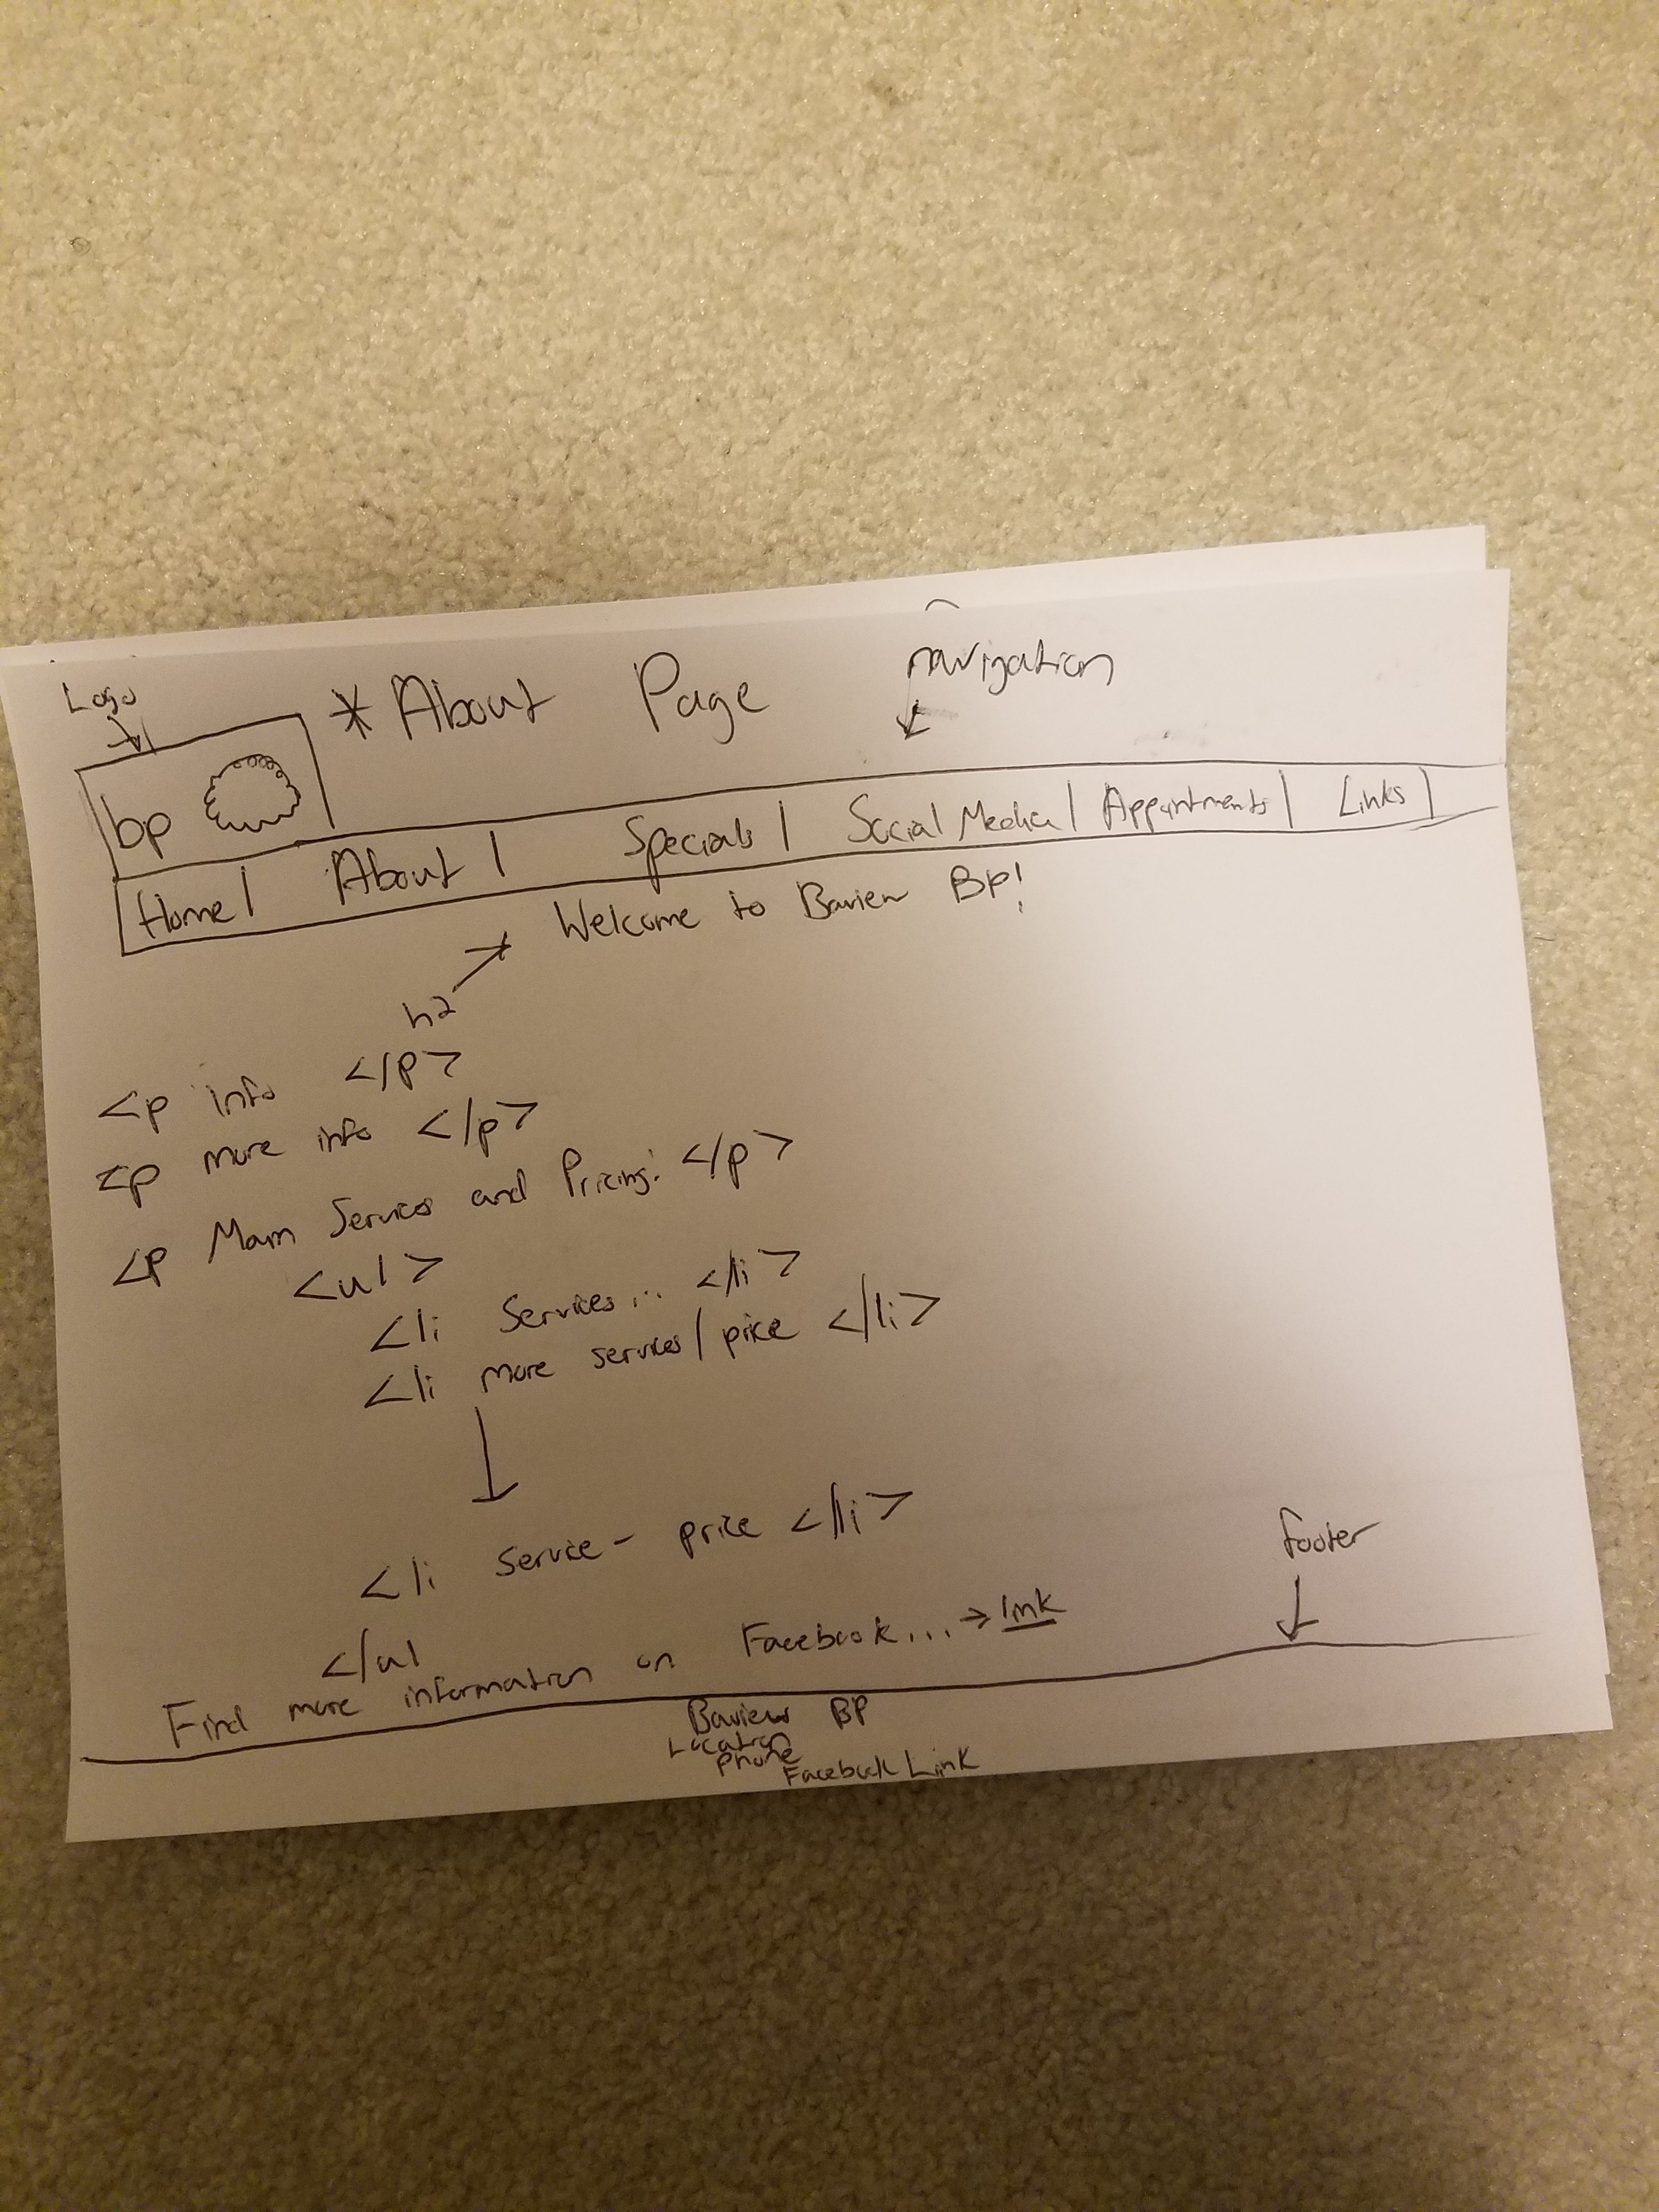 Logo
* About Page
navigation
bp
Home | About | Specials | Social Media | Appointments | Links |
Welcome to Bayview BP!
h2
<p info </p>
<p more info </p>
<p Main Services and Pricing: </p>
<ul>
<li Services... </li>
<li more services/price </li>
<li service - price </li>
</ul
Find more information on Facebook... → link
footer
Bayview BP
Location
Phone
Facebook Link